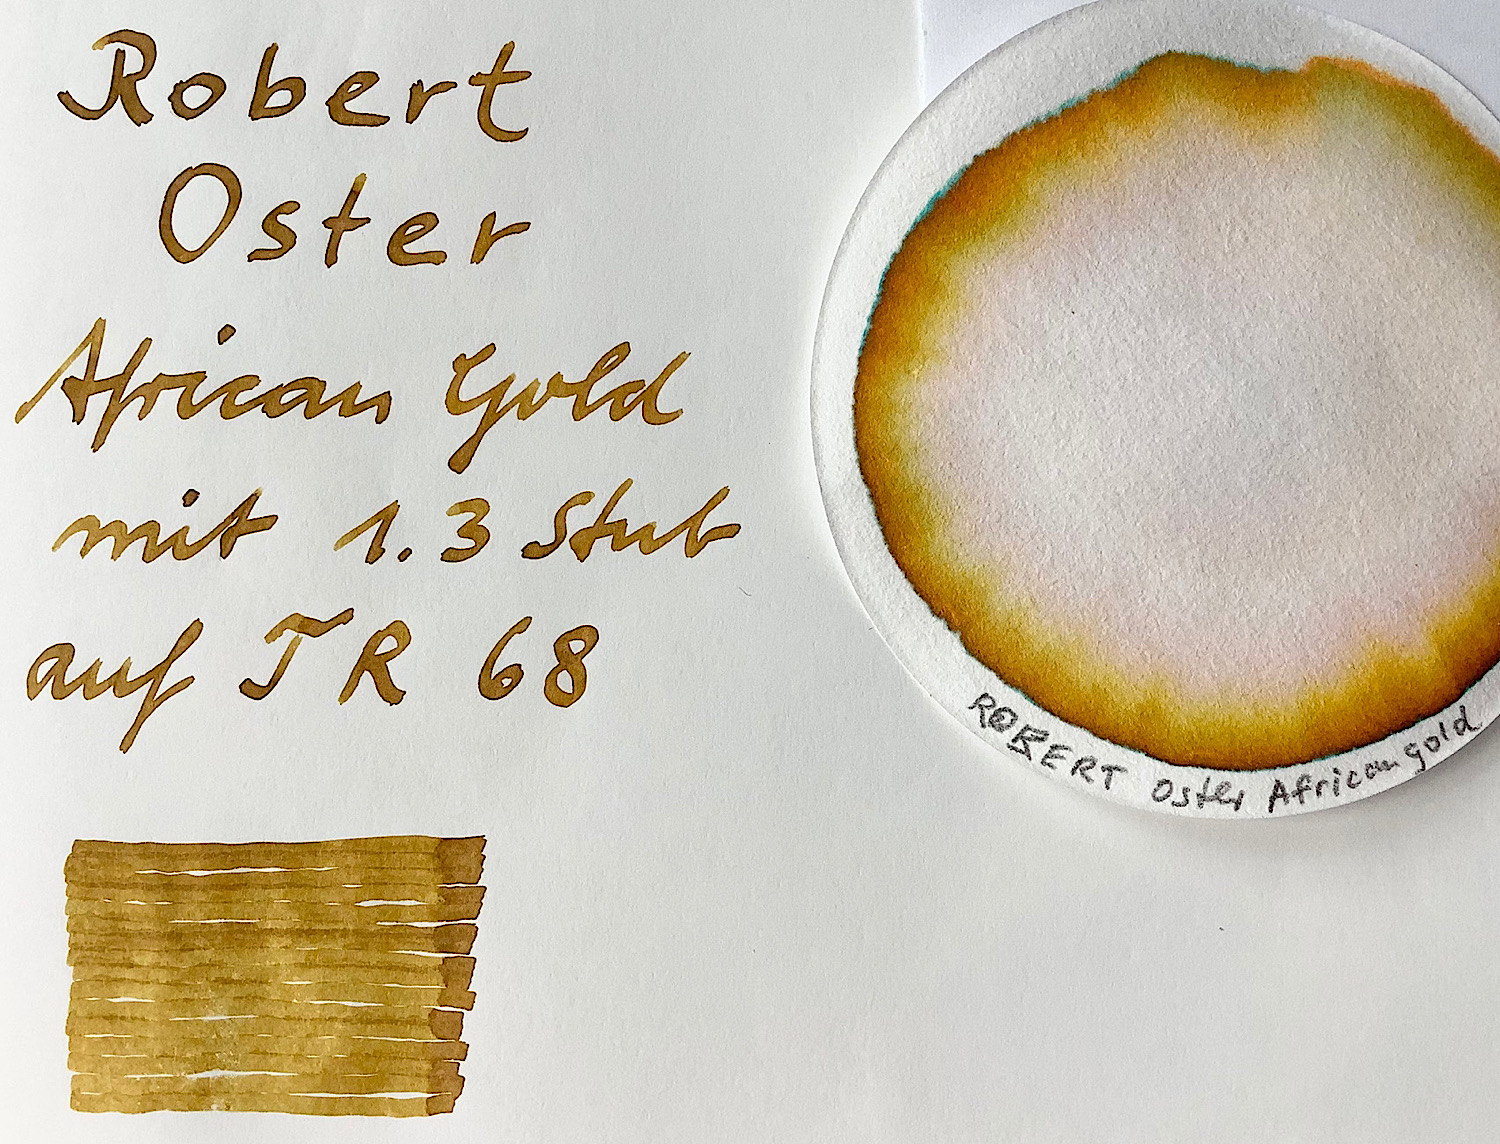 Robert
Oster
African Gold
mit 1.3 Stub
auf TR 68
ROBERT Oster African gold